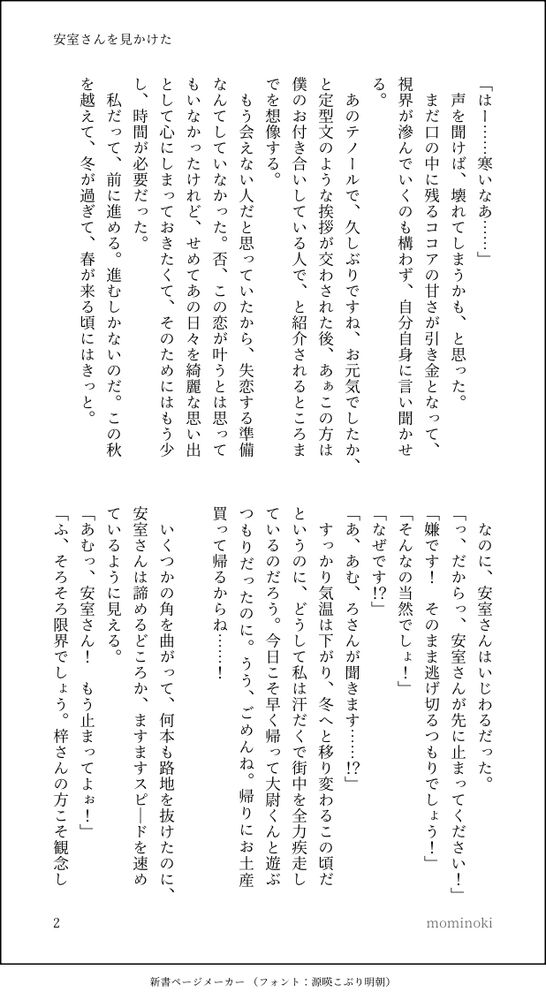 安室さんを見かけた
「はー……寒いなあ……」
声を聞けば、壊れてしまうかも、と思った。
まだ口の中に残るココアの甘さが引き金となって、
視界が滲んでいくのも構わず、自分自身に言い聞かせ
る。
あのテノールで、久しぶりですね、お元気でしたか、
と定型文のような挨拶が交わされた後、あぁこの方は
僕のお付き合いしている人で、と紹介されるところま
でを想像する。
もう会えない人だと思っていたから、失恋する準備
なんてしていなかった。否、この恋が叶うとは思って
もいなかったけれど、せめてあの日々を綺麗な思い出
として心にしまっておきたくて、そのためにはもう少
し、時間が必要だった。
私だって、前に進める。進むしかないのだ。この秋
を越えて、冬が過ぎて、春が来る頃にはきっと。
なのに、安室さんはいじわるだった。
「っ、だからっ、安室さんが先に止まってください！」
「嫌です！　そのまま逃げ切るつもりでしょう！」
「そんなの当然でしょ！」
「なぜです!?」
「あ、あむ、ろさんが聞きます……!?」
すっかり気温は下がり、冬へと移り変わるこの頃だ
というのに、どうして私は汗だくで街中を全力疾走し
ているのだろう。今日こそ早く帰って大尉くんと遊ぶ
つもりだったのに。うう、ごめんね。帰りにお土産
買って帰るからね……！
いくつかの角を曲がって、何本も路地を抜けたのに、
安室さんは諦めるどころか、ますますスピードを速め
ているように見える。
「あむっ、安室さん！　もう止まってよぉ！」
「ふ、そろそろ限界でしょう。梓さんの方こそ観念し
2
mominoki
新書ページメーカー （フォント：源暎こぶり明朝）